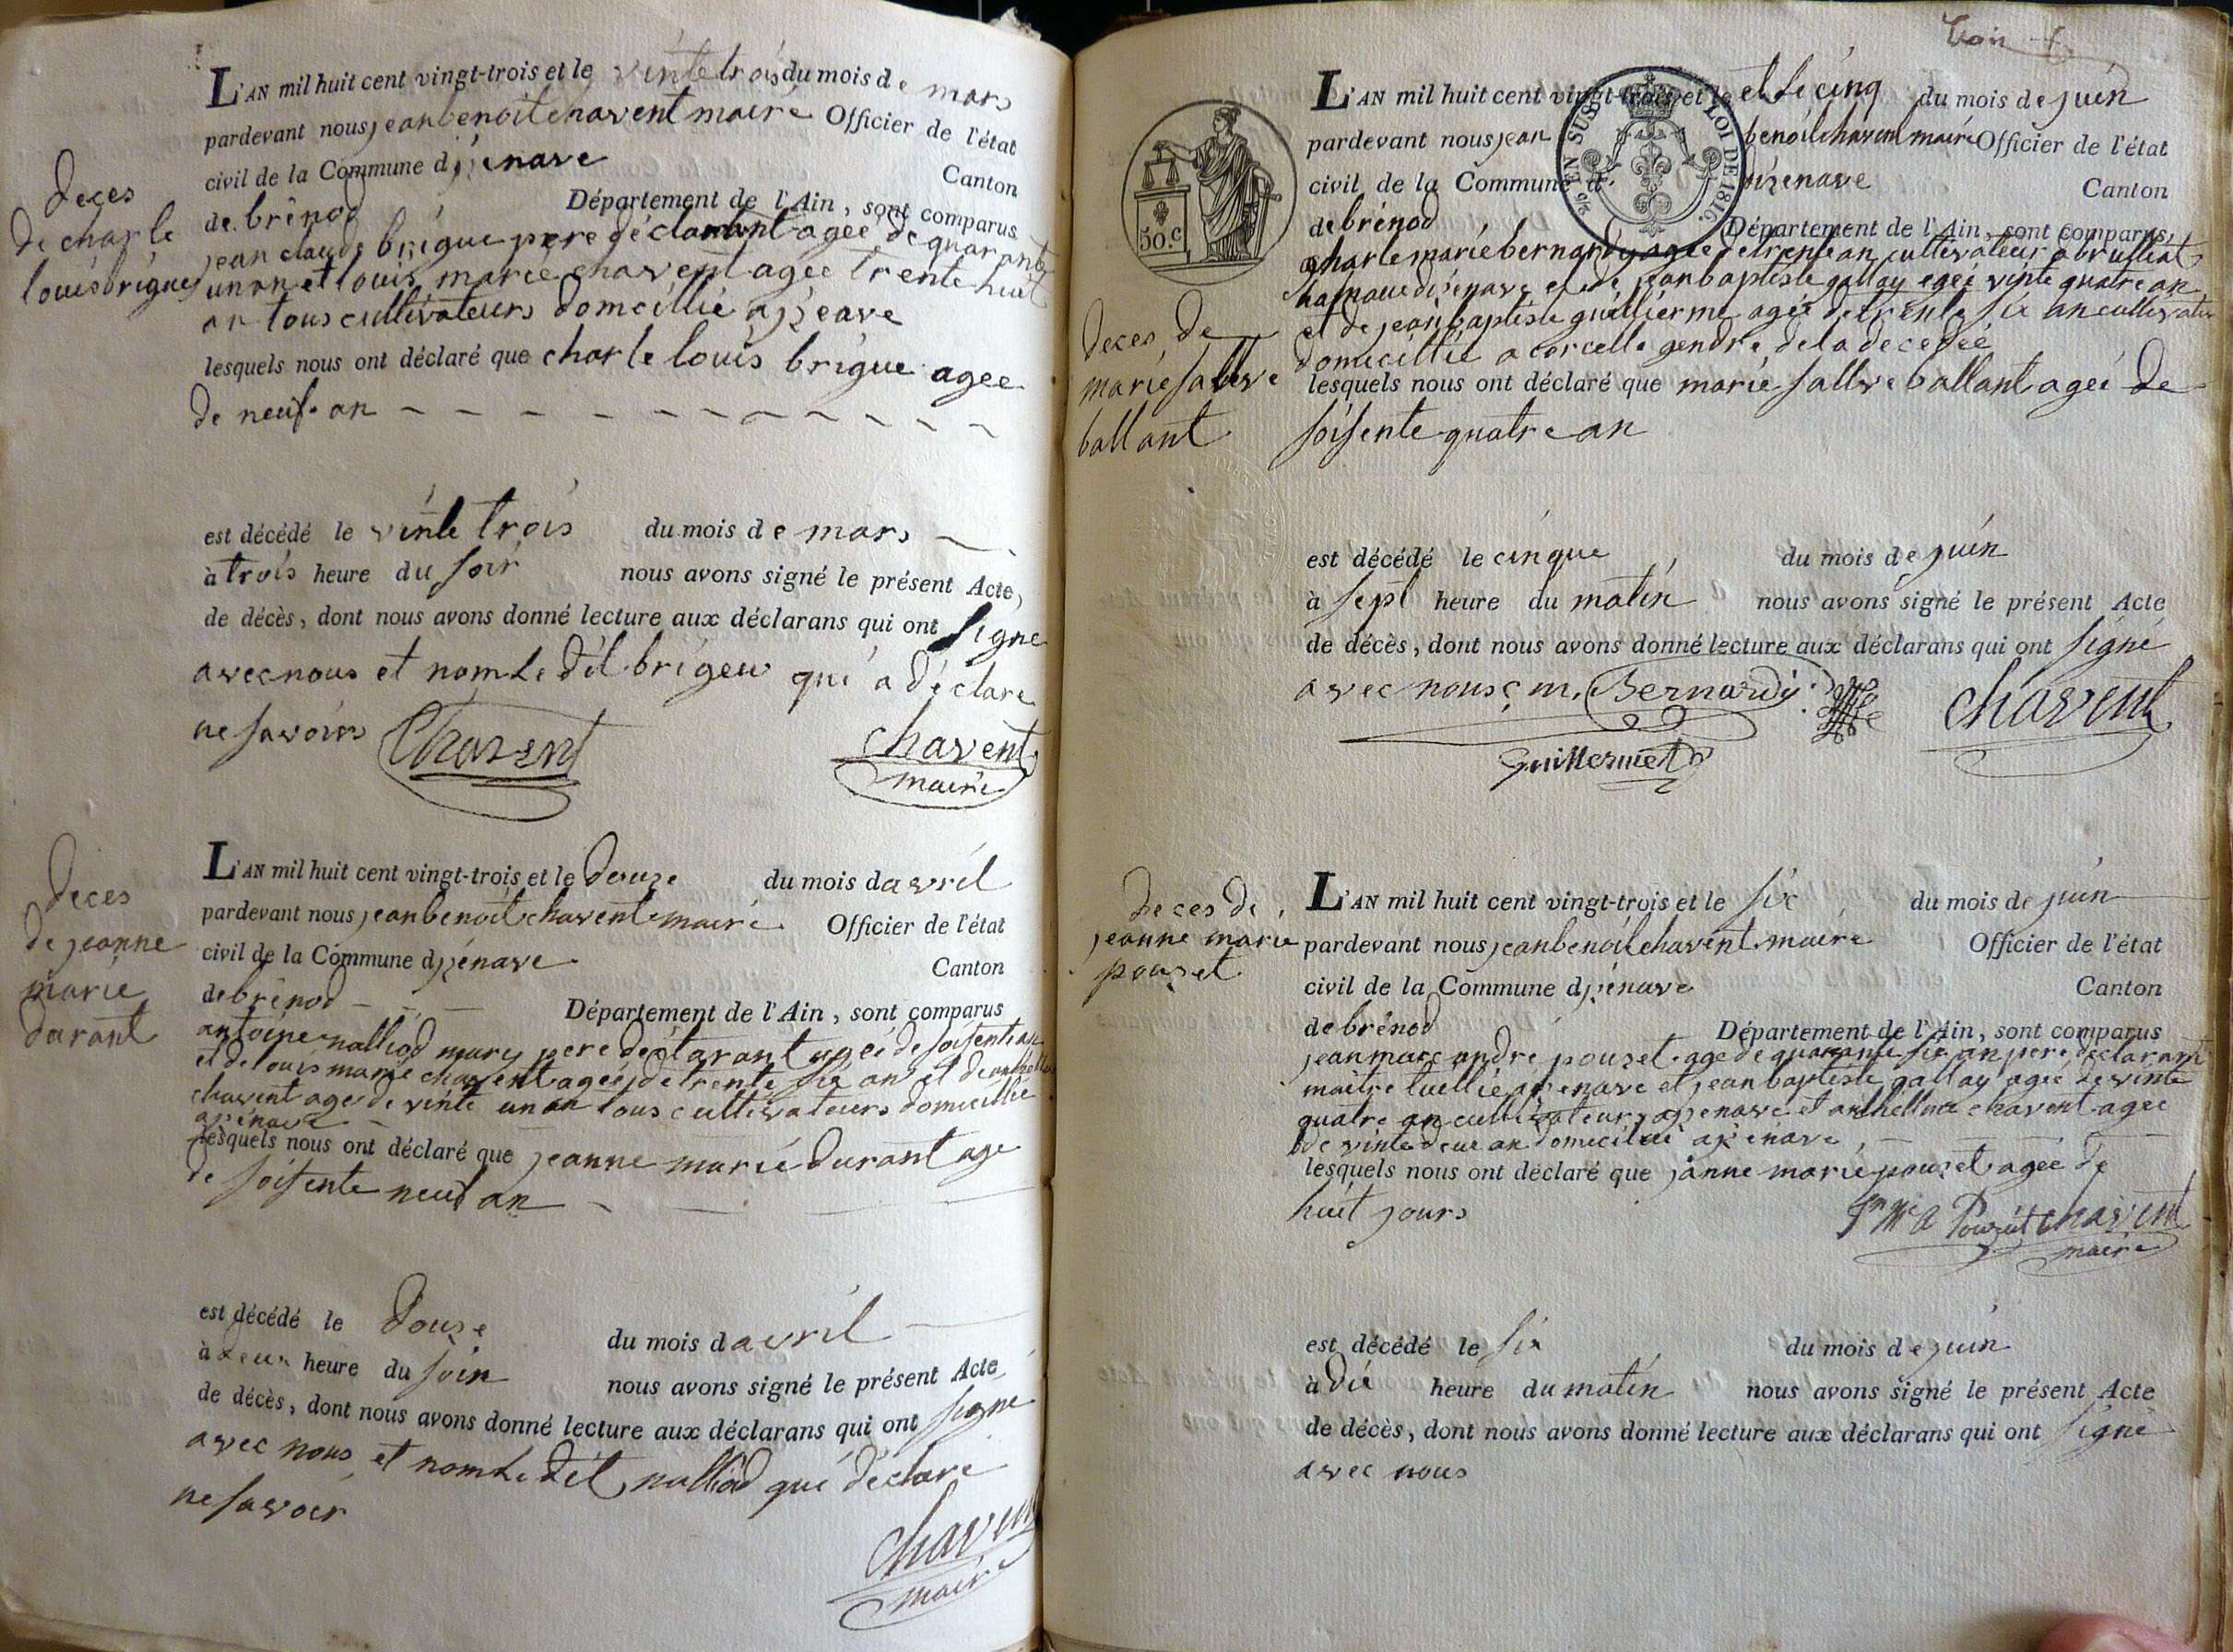 L'AN mil huit cent vingt-trois et le vinte trois du mois de mars
pardevant nous jean benoit chavent maire Officier de l'état
civil de la Commune d izenave Canton
de brénod Département de l'Ain, sont comparus
jean claude brigue pere déclarant agée de quarante
un an et louis marie chavent agée trente huit
an tous cultivateurs domcillié a izeave
lesquels nous ont déclaré que charle louis brigue agee
de neuf an
deces
de charle
louis brigue
est décédé le vinte trois du mois de mars
à trois heure du soir nous avons signé le présent Acte,
de décès, dont nous avons donné lecture aux déclarans qui ont signe
avec nous et nom le dit brigeu qui a déclare
ne savoir
Chavent
chavent
maire
L'AN mil huit cent vingt-trois et le douze du mois d avril
pardevant nous jean benoit chavent maire Officier de l'état
civil de la Commune d izénave Canton
de brénod Département de l'Ain, sont comparus
antoine nalliod mary pere déclarant agée de soisent an
et de louis marie chavent agée de trente six an et de
chavent age de vinte un an tous cultivateurs domicillié
a izénave
lesquels nous ont déclaré que jeanne marie durant age
de soisente neuf an
deces
de jeanne
marie
durant
est décédé le douze du mois d avril
à deux heure du soir nous avons signé le présent Acte
de décès, dont nous avons donné lecture aux déclarans qui ont signe
avec nous et nom le dit nalliod qui déclare
ne savoir
chavent
maire
50.c
EN SUS LOI DE 1816.
L'AN mil huit cent vingt-trois et le et le cinq du mois de juin
pardevant nous jean benoit chavent maire Officier de l'état
civil de la Commune d' dizenave Canton
de brénod Département de l'Ain, sont comparus,
charle marie bernardy agée de trente an cultivateur a brulliat
hamaue dizenave et de jean baptiste gallay egée vinte quatre an
et de jean baptiste guillierme agée de trente six an cultivateur
domicillié a corcelle gendre de la decedée
lesquels nous ont déclaré que marie sallve ballant agée de
soisente quatre an
deces de
marie sallve
ballant
est décédé le cinque du mois de juin
à sept heure du matin nous avons signé le présent Acte
de décès, dont nous avons donné lecture aux déclarans qui ont signé
avec nous c m. Bernardy chavent
Guillermet
L'AN mil huit cent vingt-trois et le six du mois de juin
pardevant nous jean benoit chavent maire Officier de l'état
civil de la Commune d izénave Canton
de brénod Département de l'Ain, sont comparus
jean marc andré pouzet age de quarante six an pere déclarant
maitre tuellié a izenave et jean baptiste gallay agée de vinte
quatre an cultivateur a izenave et anthellme chavent agée
de vinte deux an domicilié a izénave,
lesquels nous ont déclaré que janne marie pouzet agée de
huit jours
deces de
jeanne marie
pouzet
Jn Mc A Pouzet chavent
maire
est décédé le six du mois de juin
à dix heure du matin nous avons signé le présent Acte
de décès, dont nous avons donné lecture aux déclarans qui ont signé
avec nous